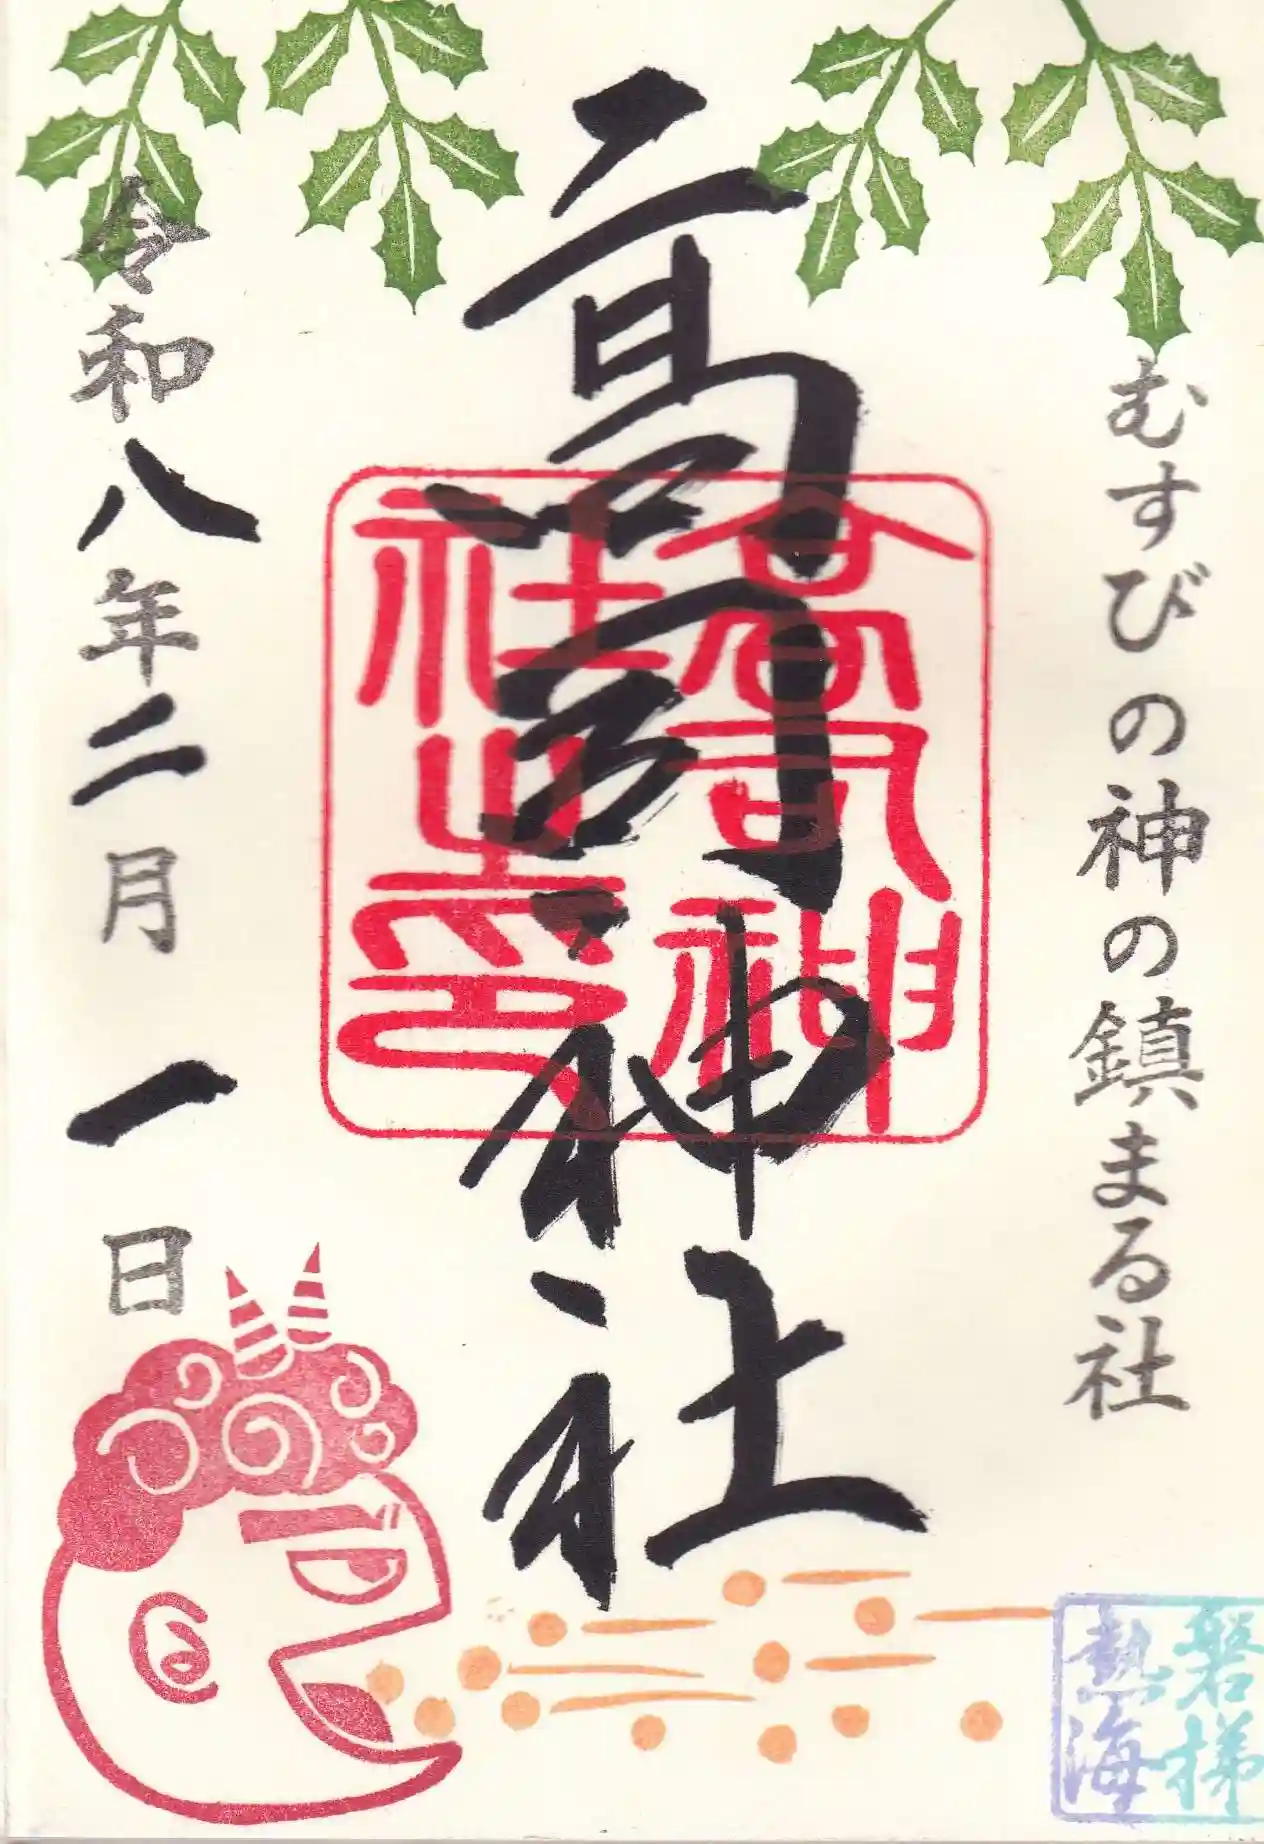 むすびの神の鎮まる社
高司神社
高司神
社之印
令和八年二月一日
磐梯
熱海